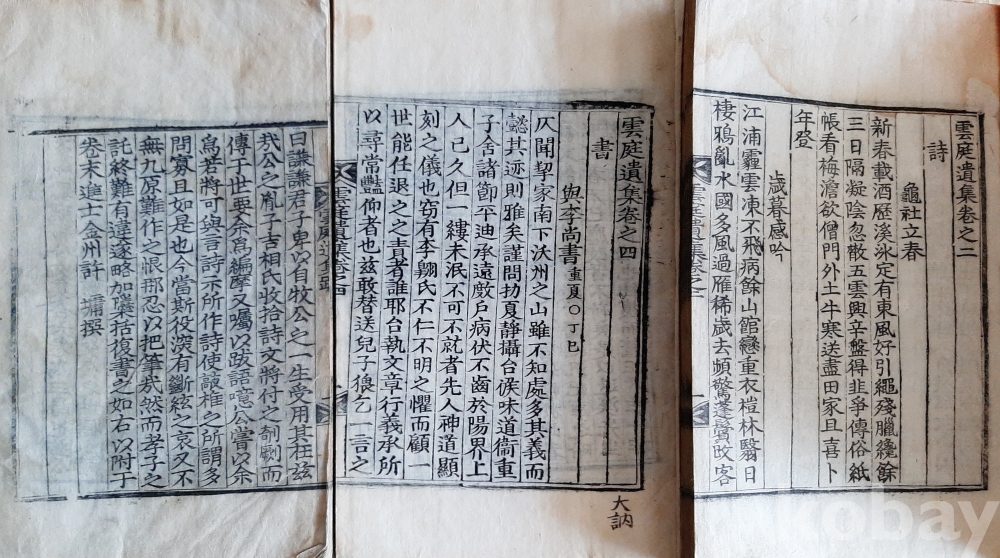 雲庭遺集卷之二
詩
龜社立春
新春載酒歷溪氷定有東風好引繩殘臘纔餘
三日隔凝陰忽散五雲興辛盤得韭爭傳俗紙
帳看梅澹欲僧門外土牛寒送盡田家且喜卜
年登
歲暮感吟
江浦霾雲凍不飛病餘山館戀重衣榰林翳日
棲鴉亂水國多風過雁稀歲去頻驚蓬鬢改客
雲庭遺集卷之四
書
與李尚書重夏○丁巳
仄聞挈家南下沃州之山雖不知處多其義而
懿其迹則雅矣謹問劫夏靜攝台候味道衞重
子舍諸節平迪承遠戲戶病伏不齒於陽界上
人已久但一縷未泯不可不就者先人神道顯
刻之儀也窃有李翶氏不仁不明之懼而顧一
世能任退之之責者誰耶台執文章行義承所
以尋常豔仰者也玆敢替送兒子 乞一言之
大訥
曰謙謙君子卑以自牧公之一生受用其在玆
㢤公之胤子吉相氏收拾詩文將付之剞劂而
傳于世要余爲編摩又囑以跋語噫公嘗以余
爲若將可與言詩示所作詩使敲椎之所謂多
問寡且如是也今當斯役深有斷絃之哀又不
無九原難作之恨挪忍以把筆㢤然而孝子之
託終難有違遂略加櫽括復書之如右以附于
卷末進士金州許 墉撰
kobay